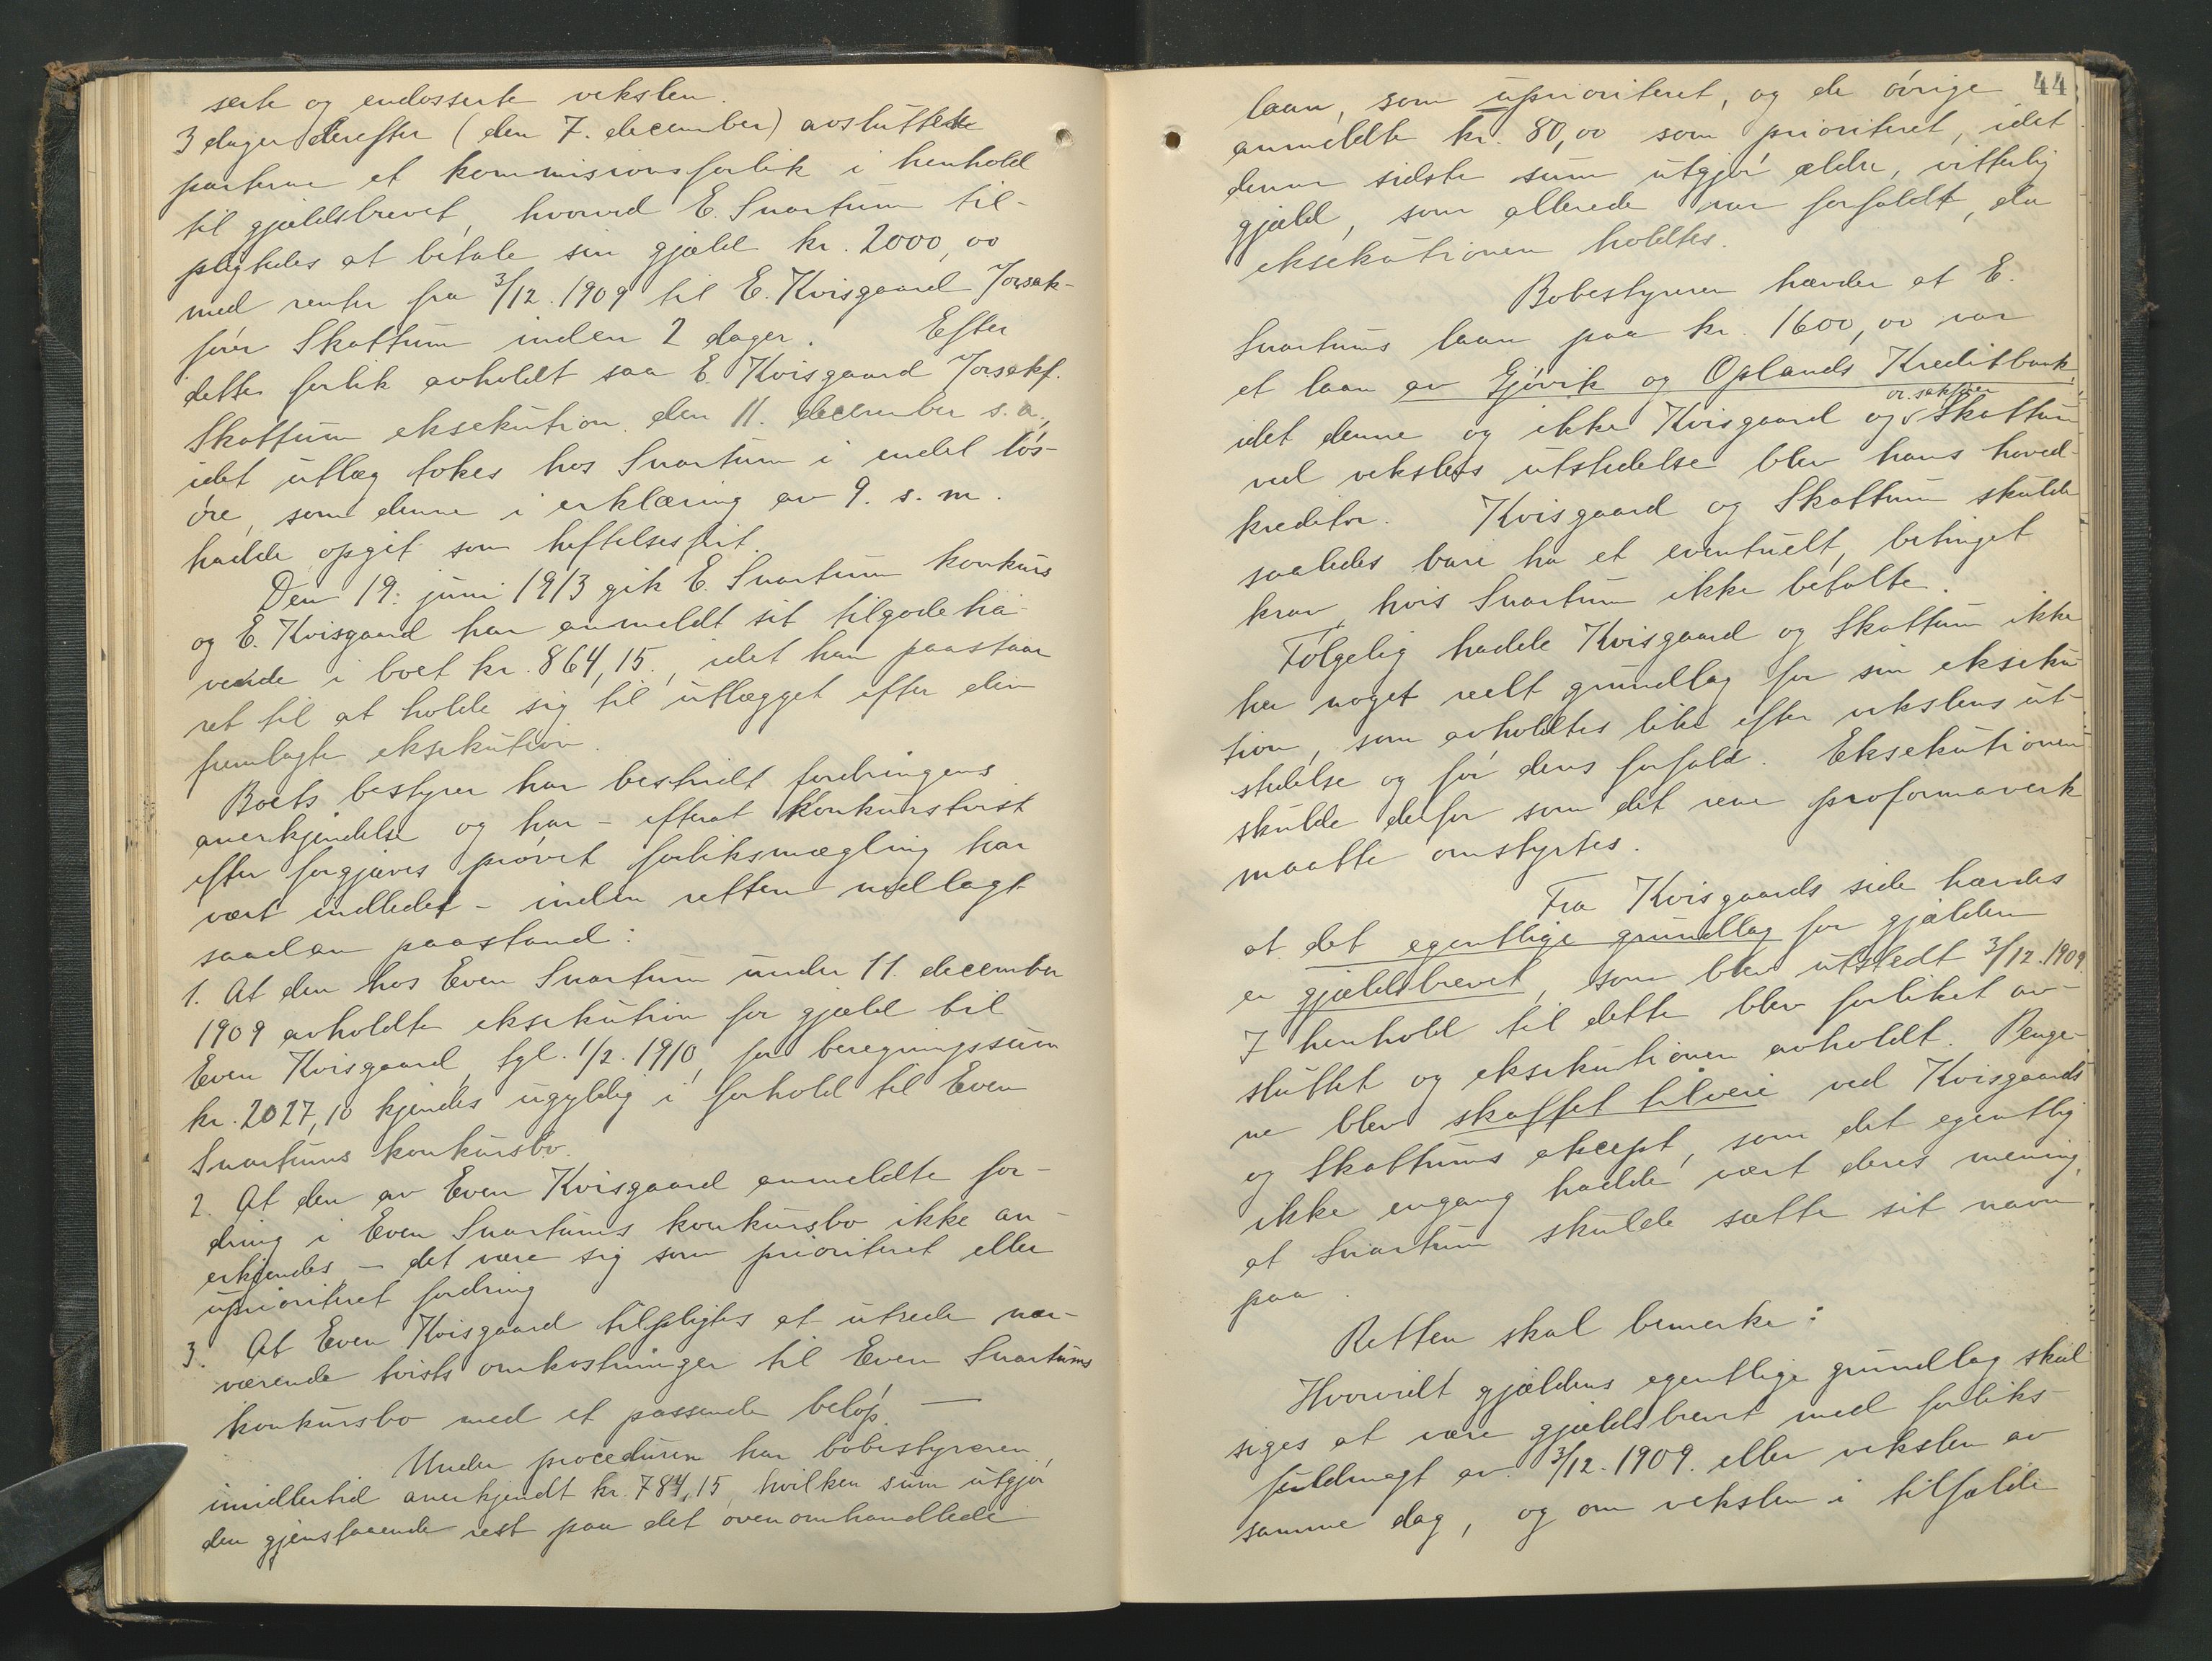 serte og endosserte vekslen.
3 dager derefter (den 7. december) avsluttede
parterne et kommisionsforlik i henhold
til gjældsbrevet, hvorved E. Svartum til-
pligtedes at betale sin gjæld kr. 2000,00
med renter fra 3/12. 1909 til E. Kvisgaard /orsak-
fører Skattum inden 2 dager. Efter
dette forlik avholdt saa E. Kvisgaard /orsakf.
Skattum eksekution den 11. december s.a.,
idet utlæg tokes hos Svartum i endel løs-
øre, som denne i erklæring av 9. s.m.
hadde opgit som heftelsesfrit.
Den 19. juni 1913 gik E. Svartum konkurs
og E. Kvisgaard har anmeldt sit tilgodeha-
vende i boet kr. 864,15, idet han paastaar
ret til at holde sig til utlægget efter den
fremlagte eksekution.
Boets bestyrer har bestridt fordringens
anerkjendelse og har - efterat konkurstvist
efter forgjæves prøvet forliksmægling har
vært indledet - inden retten nedlagt
saadan paastand:
1. At den hos Even Svartum under 11. december
1909 avholdte eksekution for gjæld til
Even Kvisgaard, tgl. 1/2. 1910, for beregningssum
kr. 2027,10 kjendes ugyldig i forhold til Even
Svartums konkursbo.
2. At den av Even Kvisgaard anmeldte for-
dring i Even Svartums konkursbo ikke an-
erkjendes - det være sig som prioriteret eller
uprioriteret fordring
3. At Even Kvisgaard tilpligtes at utrede nær-
værende tvists omkostninger til Even Svartums
konkursbo med et passende beløp. —
Under proceduren har bobestyreren
imidlertid anerkjendt kr. 784,15, hvilken sum utgjør
den gjenstaaende rest paa det ovenomhandlede
44
laan, som uprioriteret, og de øvrige
anmeldte kr. 80,00 som prioriteret, idet
denne sidste sum utgjør ældre, vitterlig
gjæld, som allerede var forfaldt, da
eksekutionen holdtes.
Bobestyreren hævder at E.
Svartums laan paa kr. 1600,00 var
et laan av Gjøvik og Oplands Kreditbank,
or.sakfører
idet denne og ikke Kvisgaard og Skattum
ved vekslens utstedelse blev hans hoved-
kreditor. Kvisgaard og Skattum skulde
saaledes bare ha et eventuelt, betinget
krav, hvis Svartum ikke betalte.
Følgelig hadde Kvisgaard og Skattum ikke
her noget reelt grundlag for sin ekseku-
tion, som avholdtes like efter vekslens ut-
stedelse og før dens forfald. Eksekutionen
skulde derfor som det rene proformaverk
maatte omstyrtes.
Fra Kvisgaards side hævdes
at det egentlige grundlag for gjælden
er gjældsbrevet, som blev utstedt 3/12. 1909.
I henhold til dette blev forliket av-
sluttet og eksekutionen avholdt. Penge-
ne blev skaffet tilveie ved Kvisgaards
og Skattums aksept, som det egentlig
ikke engang hadde vært deres mening,
at Svartum skulde sætte sit navn
paa.
Retten skal bemerke:
Hvorvidt gjældens egentlige grundlag skal
siges at være gjældsbrevet med forliks-
fuldmagt av 3/12. 1909. eller vekslen av
samme dag, og om vekslen i tilfælde